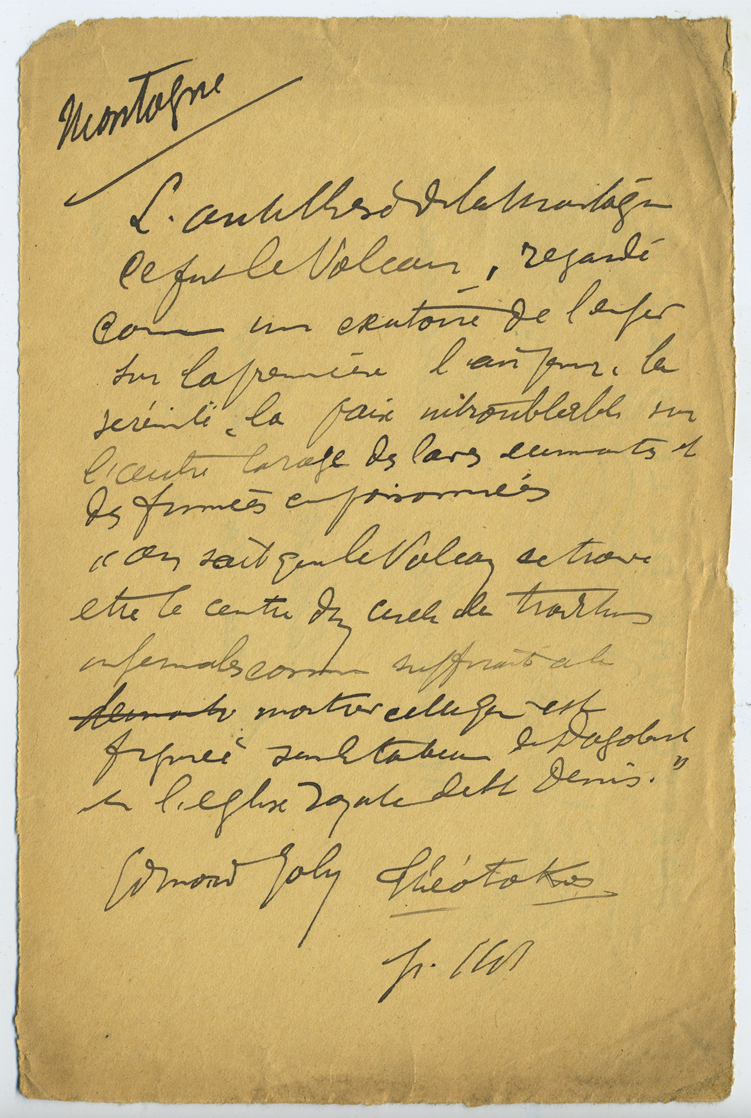 Montagne
L'antithèse de la Montagne
Ce fut le Volcan, regardé
comme un exutoire de l'enfer
sur la première l'air pur, la
sérénité, la paix introublable sur
l'autre la rage des laves et
des fumées empoisonnées
"On sait que le Volcan se trouve
être le centre du cercle de traditions
infernales comme suffirait à le
montrer celle qui est
figurée sur le tombeau de Dagobert
en l'église royale de St Denis."
Edmond Joly Théotokos
p.